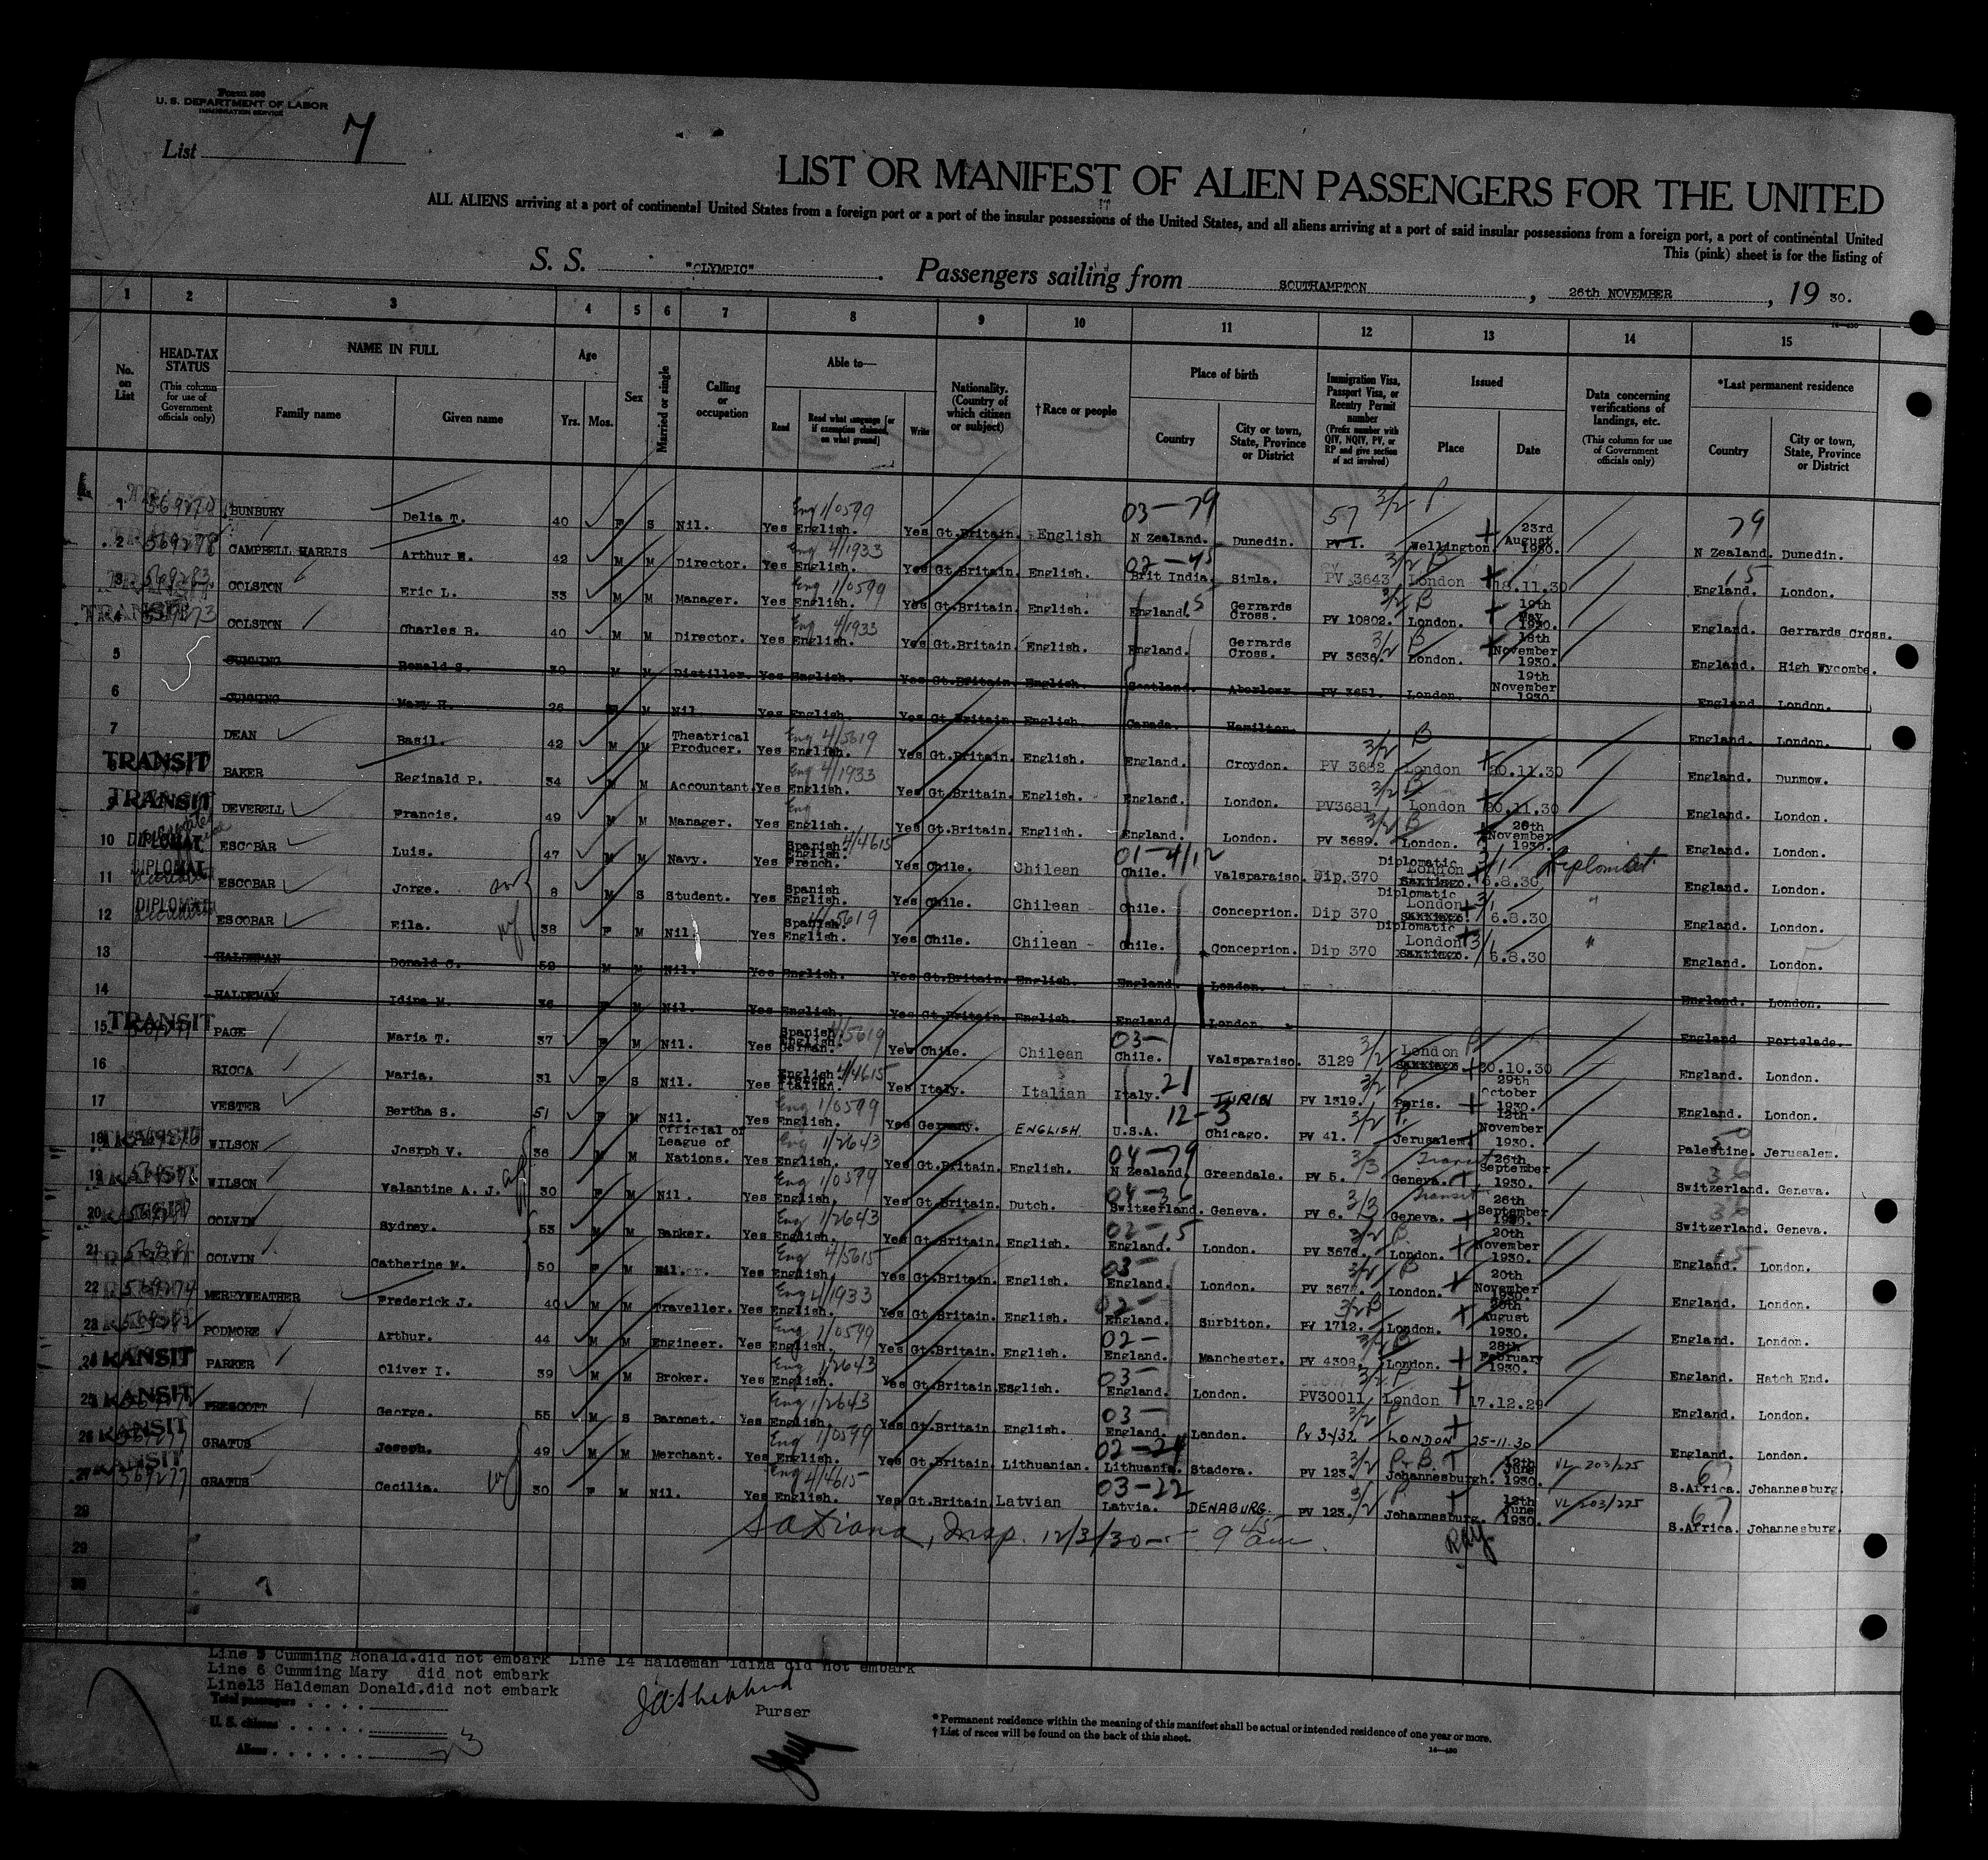 Form 500
U. S. DEPARTMENT OF LABOR
IMMIGRATION SERVICE
List 7
LIST OR MANIFEST OF ALIEN PASSENGERS FOR THE UNITED
ALL ALIENS arriving at a port of continental United States from a foreign port or a port of the insular possessions of the United States, and all aliens arriving at a port of said insular possessions from a foreign port, a port of continental United
This (pink) sheet is for the listing of
S. S. "OLYMPIC" . Passengers sailing from SOUTHAMPTON , 26th NOVEMBER , 19 30.
1 2 3 4 5 6 7 8 9 10 11 12 13 14 15
No. on List
HEAD-TAX STATUS (This column for use of Government officials only)
NAME IN FULL Family name Given name
Age Yrs. Mos.
Sex
Married or single
Calling or occupation
Able to— Read Read what language [or if exemption claimed, on what ground] Write
Nationality. (Country of which citizen or subject)
†Race or people
Place of birth Country City or town, State, Province or District
Immigration Visa, Passport Visa, or Reentry Permit number (Prefix number with QIV, NQIV, PV, or RP and give section of act involved)
Issued Place Date
Data concerning verifications of landings, etc. (This column for use of Government officials only)
*Last permanent residence Country City or town, State, Province or District
1 BUNBURY Delia T. 40 F S Nil. Yes English. Yes Gt.Britain. English N Zealand. Dunedin. PV 1. 57 Wellington 23rd August 1930. N Zealand. Dunedin.
2 CAMPBELL HARRIS Arthur W. 42 M M Director. Yes English. Yes Gt.Britain. English. Brit India. Simla. PV 3643 London 18.11.30 England. London.
3 COLSTON Eric L. 33 M M Manager. Yes English. Yes Gt.Britain. English. England. Gerrards Cross. PV 10802. London. 19th May 1930. England. Gerrards Cross.
4 COLSTON Charles B. 40 M M Director. Yes English. Yes Gt.Britain. English. England. Gerrards Cross. PV 3636. London. 18th November 1930. England. High Wycombe.
5 CUMMING Ronald S. 30 M M Distiller. Yes English. Yes Gt.Britain. English. Scotland. Aberlour. PV 3651. London. 19th November 1930. England London.
6 CUMMING Mary H. 26 F M Nil. Yes English. Yes Gt.Britain. English. Canada. Hamilton. England. London.
7 DEAN Basil. 42 M M Theatrical Producer. Yes English. Yes Gt.Britain. English. England. Croydon. PV 3682 London 20.11.30 England. Dunmow.
TRANSIT BAKER Reginald P. 34 M M Accountant. Yes English. Yes Gt.Britain. English. England. London. PV3681 London 20.11.30 England. London.
9 TRANSIT DEVERELL Francis. 49 M M Manager. Yes English. Yes Gt.Britain. English. England. London. PV 3689. London. 26th November 1930. England. London.
10 DIPLOMAT ESCOBAR Luis. 47 M M Navy. Yes Spanish English. French. Yes Chile. Chilean Chile. Valsparaiso. Dip 370 Diplomatic London 6.8.30 Diplomat England. London.
11 DIPLOMAT ESCOBAR Jorge. son 8 M S Student. Yes Spanish English. Yes Chile. Chilean Chile. Conceprion. Dip 370 Diplomatic London 6.8.30 " England. London.
12 DIPLOMAT ESCOBAR Eila. wf 38 F M Nil. Yes Spanish. English. Yes Chile. Chilean Chile. Conceprion. Dip 370 Diplomatic London 6.8.30 " England. London.
13 HALDEMAN Donald C. 52 M M Nil. Yes English. Yes Gt.Britain. English. England. London. England. London.
14 HALDEMAN Idina M. 36 F M Nil. Yes English. Yes Gt.Britain. English. England London. England Portslade.
15 TRANSIT PAGE Maria T. 37 F M Nil. Yes Spanish English. German. Yes Chile. Chilean Chile. Valsparaiso. 3129 London 20.10.30 England. London.
16 RICCA Maria. 31 F S Nil. Yes English Italian. Yes Italy. Italian Italy. TURIN PV 1319. Paris. 29th October 1930. England. London.
17 VESTER Bertha S. 51 F M Nil. Yes English. Yes Germany. ENGLISH U.S.A. Chicago. PV 41. Jerusalem 12th November 1930. Palestine. Jerusalem.
18 WILSON Joseph V. 36 M M Official of League of Nations. Yes English. Yes Gt.Britain. English. N Zealand. Greendale. PV 5. Geneva. Transit 26th September 1930. Switzerland. Geneva.
19 WILSON Valantine A. J. wf 30 F M Nil. Yes English. Yes Gt.Britain. Dutch. Switzerland. Geneva. PV 6. Geneva. Transit 26th September 1930. Switzerland. Geneva.
20 COLVIN Sydney. 53 M M Banker. Yes English. Yes Gt.Britain. English. England. London. PV 3676. London. 20th November 1930. England. London.
21 COLVIN Catherine M. 50 F M Nil. Yes English. Yes Gt.Britain. English. England. London. PV 367 London. 20th November 1930. England. London.
22 MERRYWEATHER Frederick J. 40 M M Traveller. Yes English. Yes Gt.Britain. English. England. Surbiton. PV 1712. London. August 1930. England. London.
23 PODMORE Arthur. 44 M M Engineer. Yes English. Yes Gt.Britain. English. England. Manchester. PV 4308. London. 28th February 1930. England. Hatch End.
24 PARKER Oliver I. 39 M M Broker. Yes English. Yes Gt.Britain. English. England. London. PV30011 London 17.12.29 England. London.
25 PRESCOTT George. 55 M S Baronet. Yes English. Yes Gt.Britain. English. England. London. PV 3432 LONDON 25-11.30 England. London.
26 GRATUS Joseph. 49 M M Merchant. Yes English. Yes Gt.Britain. Lithuanian. Lithuania. Stadora. PV 123. Johannesburgh. 12th June 1930. VL 203/275 S.Africa. Johannesburg.
27 GRATUS Cecilia. wf 30 F M Nil. Yes English. Yes Gt.Britain. Latvian Latvia. DENABURG. PV 123. Johannesburg. 12th June 1930. VL 203/275 S.Africa. Johannesburg.
28 Insp. 12/3/30 — 9 45 am.
29
30
Line 5 Cumming Ronald.did not embark Line 14 Haldeman Idina did not embark
Line 6 Cumming Mary did not embark
Line13 Haldeman Donald.did not embark
Total passengers
U. S. citizens
Aliens 23
Purser
* Permanent residence within the meaning of this manifest shall be actual or intended residence of one year or more.
† List of races will be found on the back of this sheet.